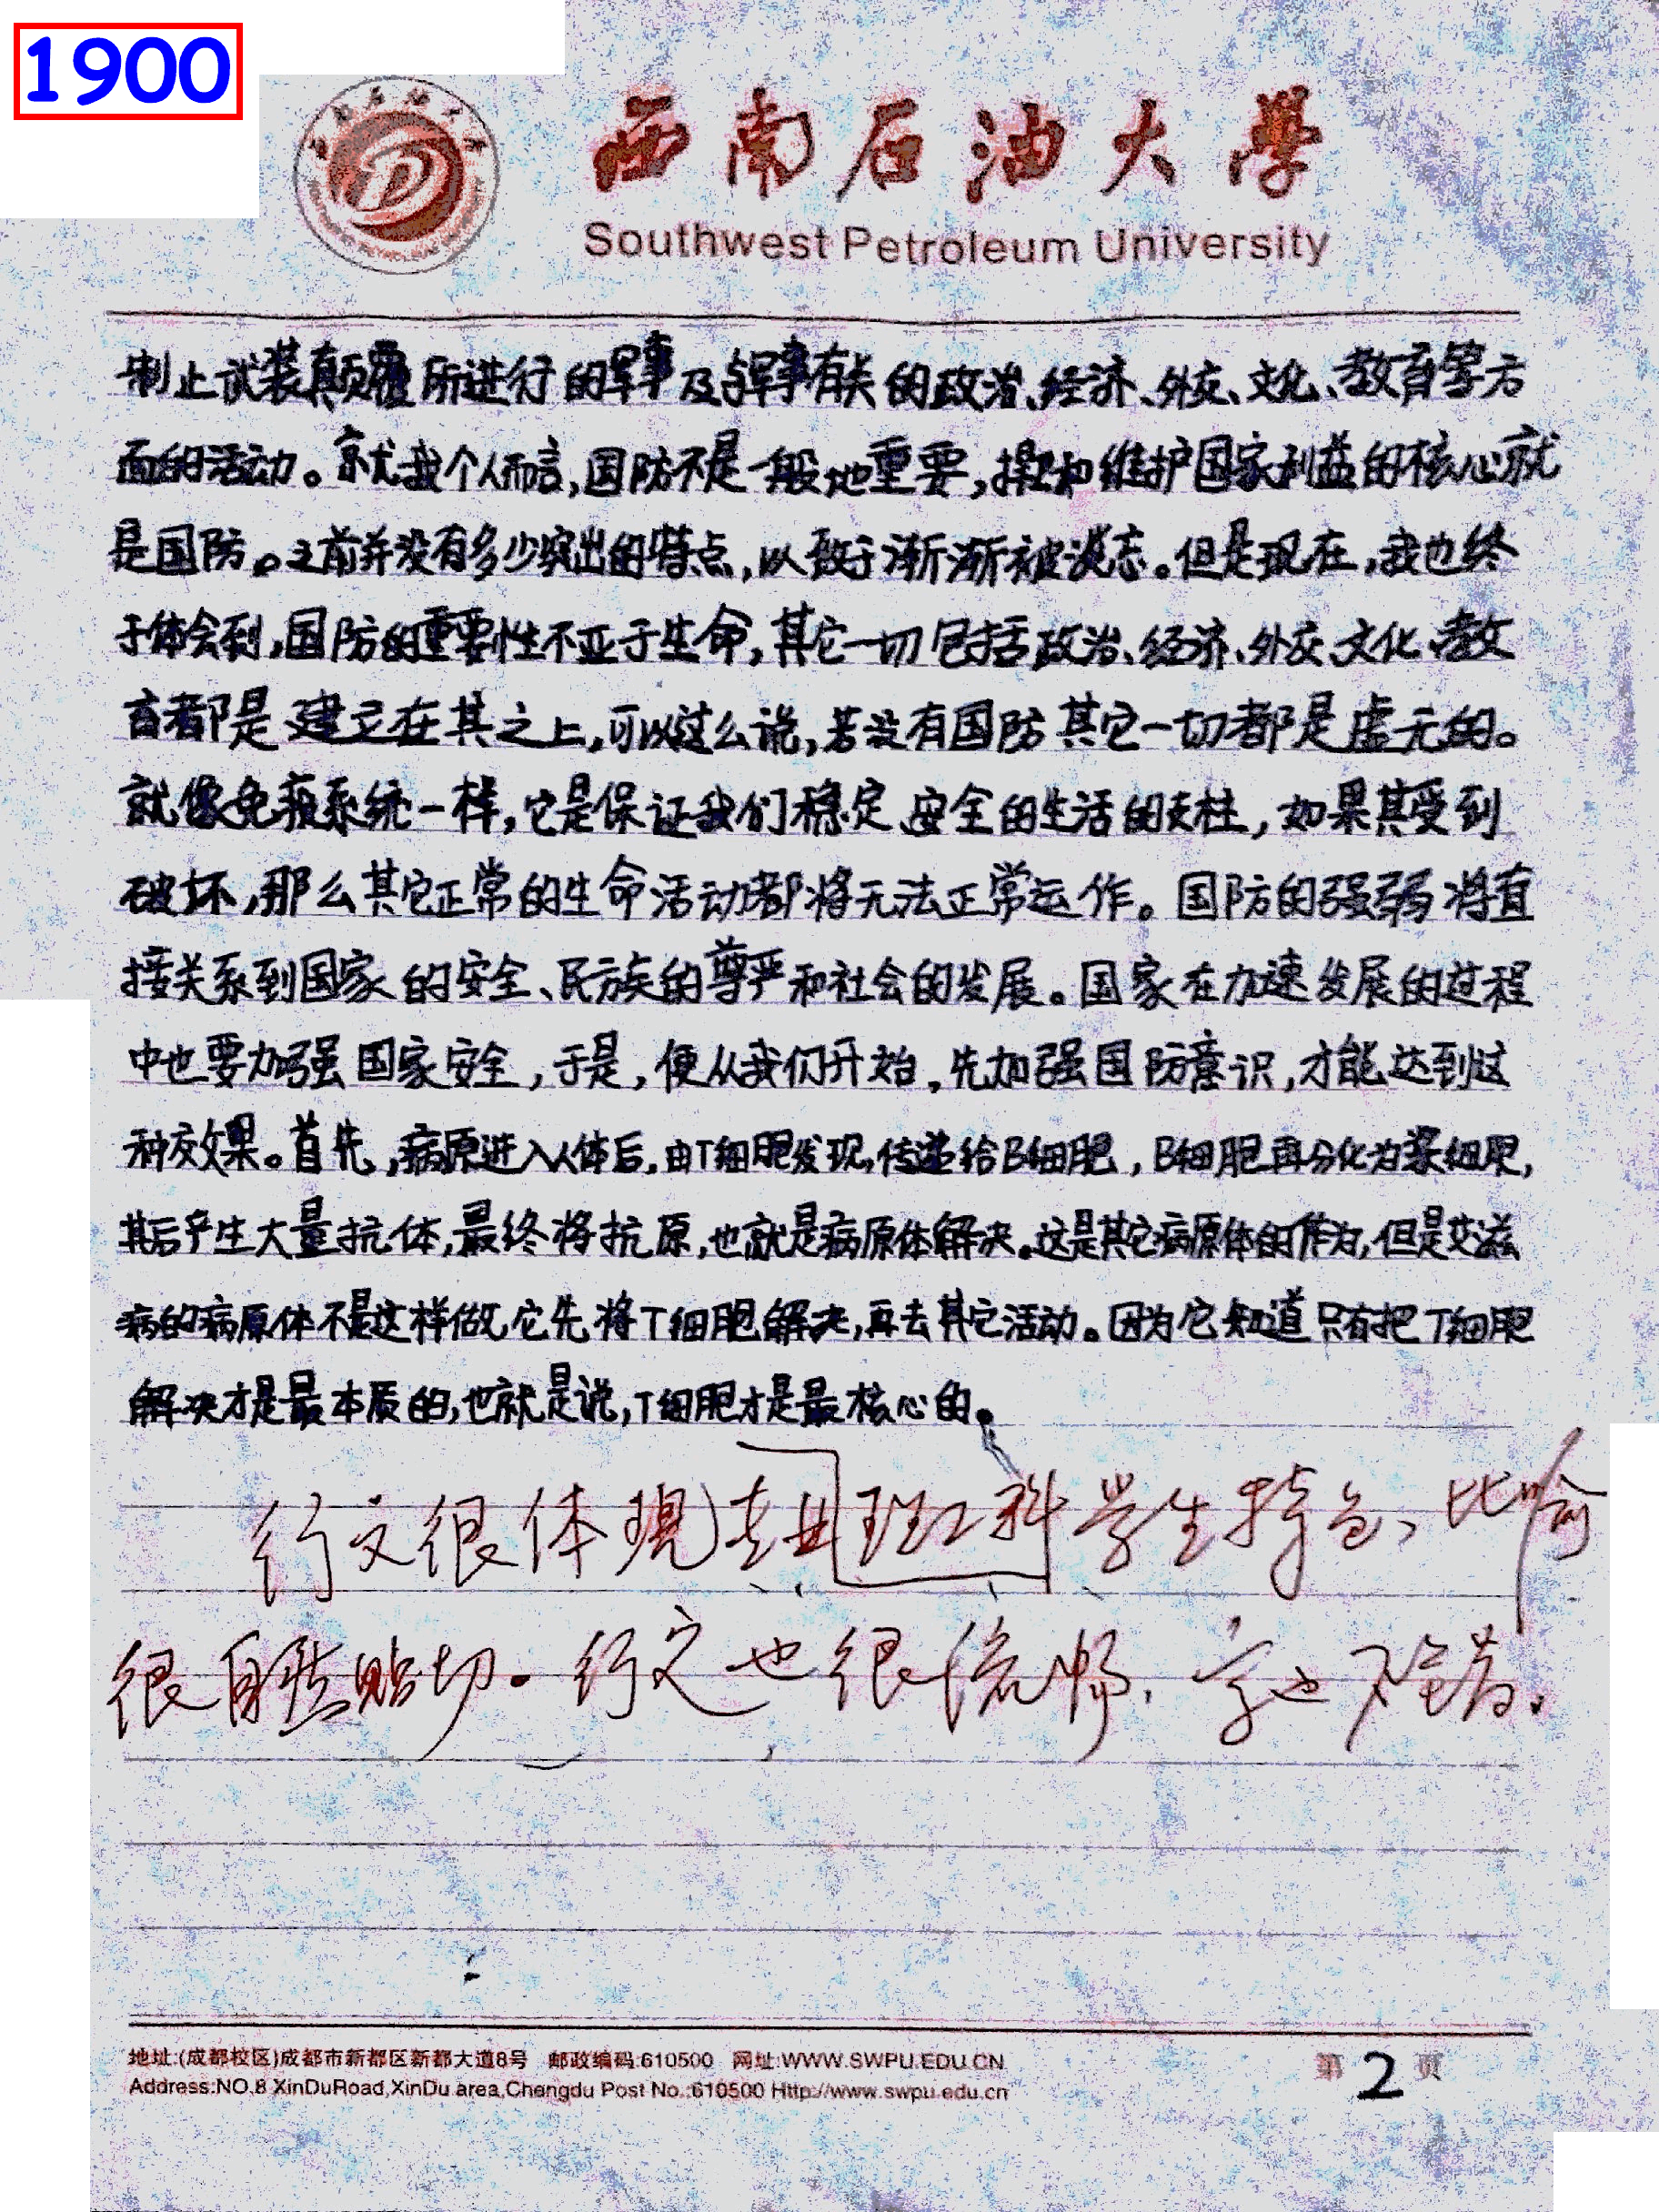 1900
西南石油大學
Southwest Petroleum University
制止武装颠覆所进行的军事及与军事有关的政治、经济、外交、文化、教育等方
面的活动。就我个人而言,国防不是一般地重要,捍卫和维护国家利益的核心就
是国防。之前并没有多少突出的特点,以致于渐渐被淡忘。但是现在,我也终
于体会到,国防的重要性不亚于生命,其它一切包括政治、经济、外交、文化、教
育都是建立在其之上,可以这么说,若没有国防其它一切都是虚无的。
就像免疫系统一样,它是保证我们稳定、安全的生活的支柱,如果其受到
破坏,那么其它正常的生命活动都将无法正常运作。国防的强弱将直
接关系到国家的安全、民族的尊严和社会的发展。国家在加速发展的过程
中也要加强国家安全,于是,便从我们开始,先加强国防意识,才能达到这
种效果。首先,病原进入人体后,由T细胞发现,传递给B细胞,B细胞再分化为浆细胞,
其后产生大量抗体,最终将抗原,也就是病原体解决。这是其它病原体的作为,但是艾滋
病的病原体不是这样做,它先将T细胞解决,再去其它活动。因为它知道只有把T细胞
解决才是最本质的,也就是说,T细胞才是最核心的。
行文很体现专业理工科学生特色、比喻
很自然贴切。行文也很流畅,字也不错。
地址:(成都校区)成都市新都区新都大道8号 邮政编码:610500 网址:WWW.SWPU.EDU.CN
Address:NO.8 XinDuRoad,XinDu area,Chengdu Post No.:610500 Http://www.swpu.edu.cn
第2页